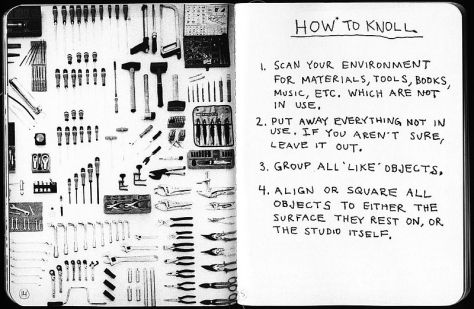 HOW TO KNOLL
1. SCAN YOUR ENVIRONMENT
FOR MATERIALS, TOOLS, BOOKS,
MUSIC, ETC. WHICH ARE NOT
IN USE.
2. PUT AWAY EVERYTHING NOT IN
USE. IF YOU AREN'T SURE,
LEAVE IT OUT.
3. GROUP ALL 'LIKE' OBJECTS.
4. ALIGN OR SQUARE ALL
OBJECTS TO EITHER THE
SURFACE THEY REST ON, OR
THE STUDIO ITSELF.